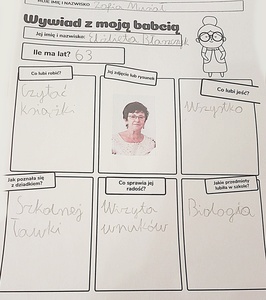 MOJE IMIĘ I NAZWISKO Zofia
Wywiad z moją babcią
Jej imię i nazwisko: Elżbieta Błaszczyk
Ile ma lat? 63
Co lubi robić?
Jej zdjęcie lub rysunek
Co lubi jeść?
Czytać
książki
Wszystko
Jak poznała się
z dziadkiem?
Co sprawia jej
radość?
Jakie przedmioty
lubiła w szkole?
Szkolnej
ławki
Wizyta
wnuków
Biologia